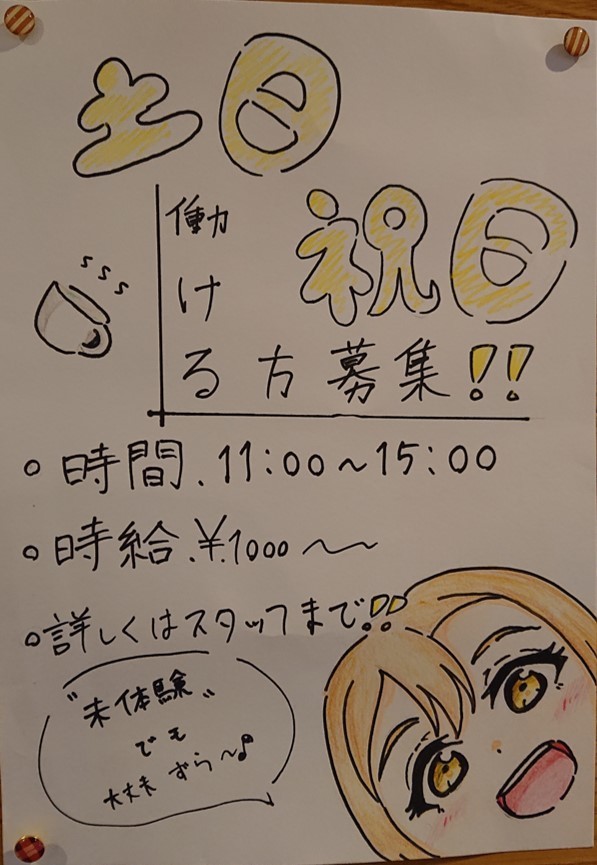 土日
祝日
働ける方募集!!
○時間.11:00～15:00
○時給.¥1000～
○詳しくはスタッフまで!!
"未体験"
でも
大丈夫ずら～♪